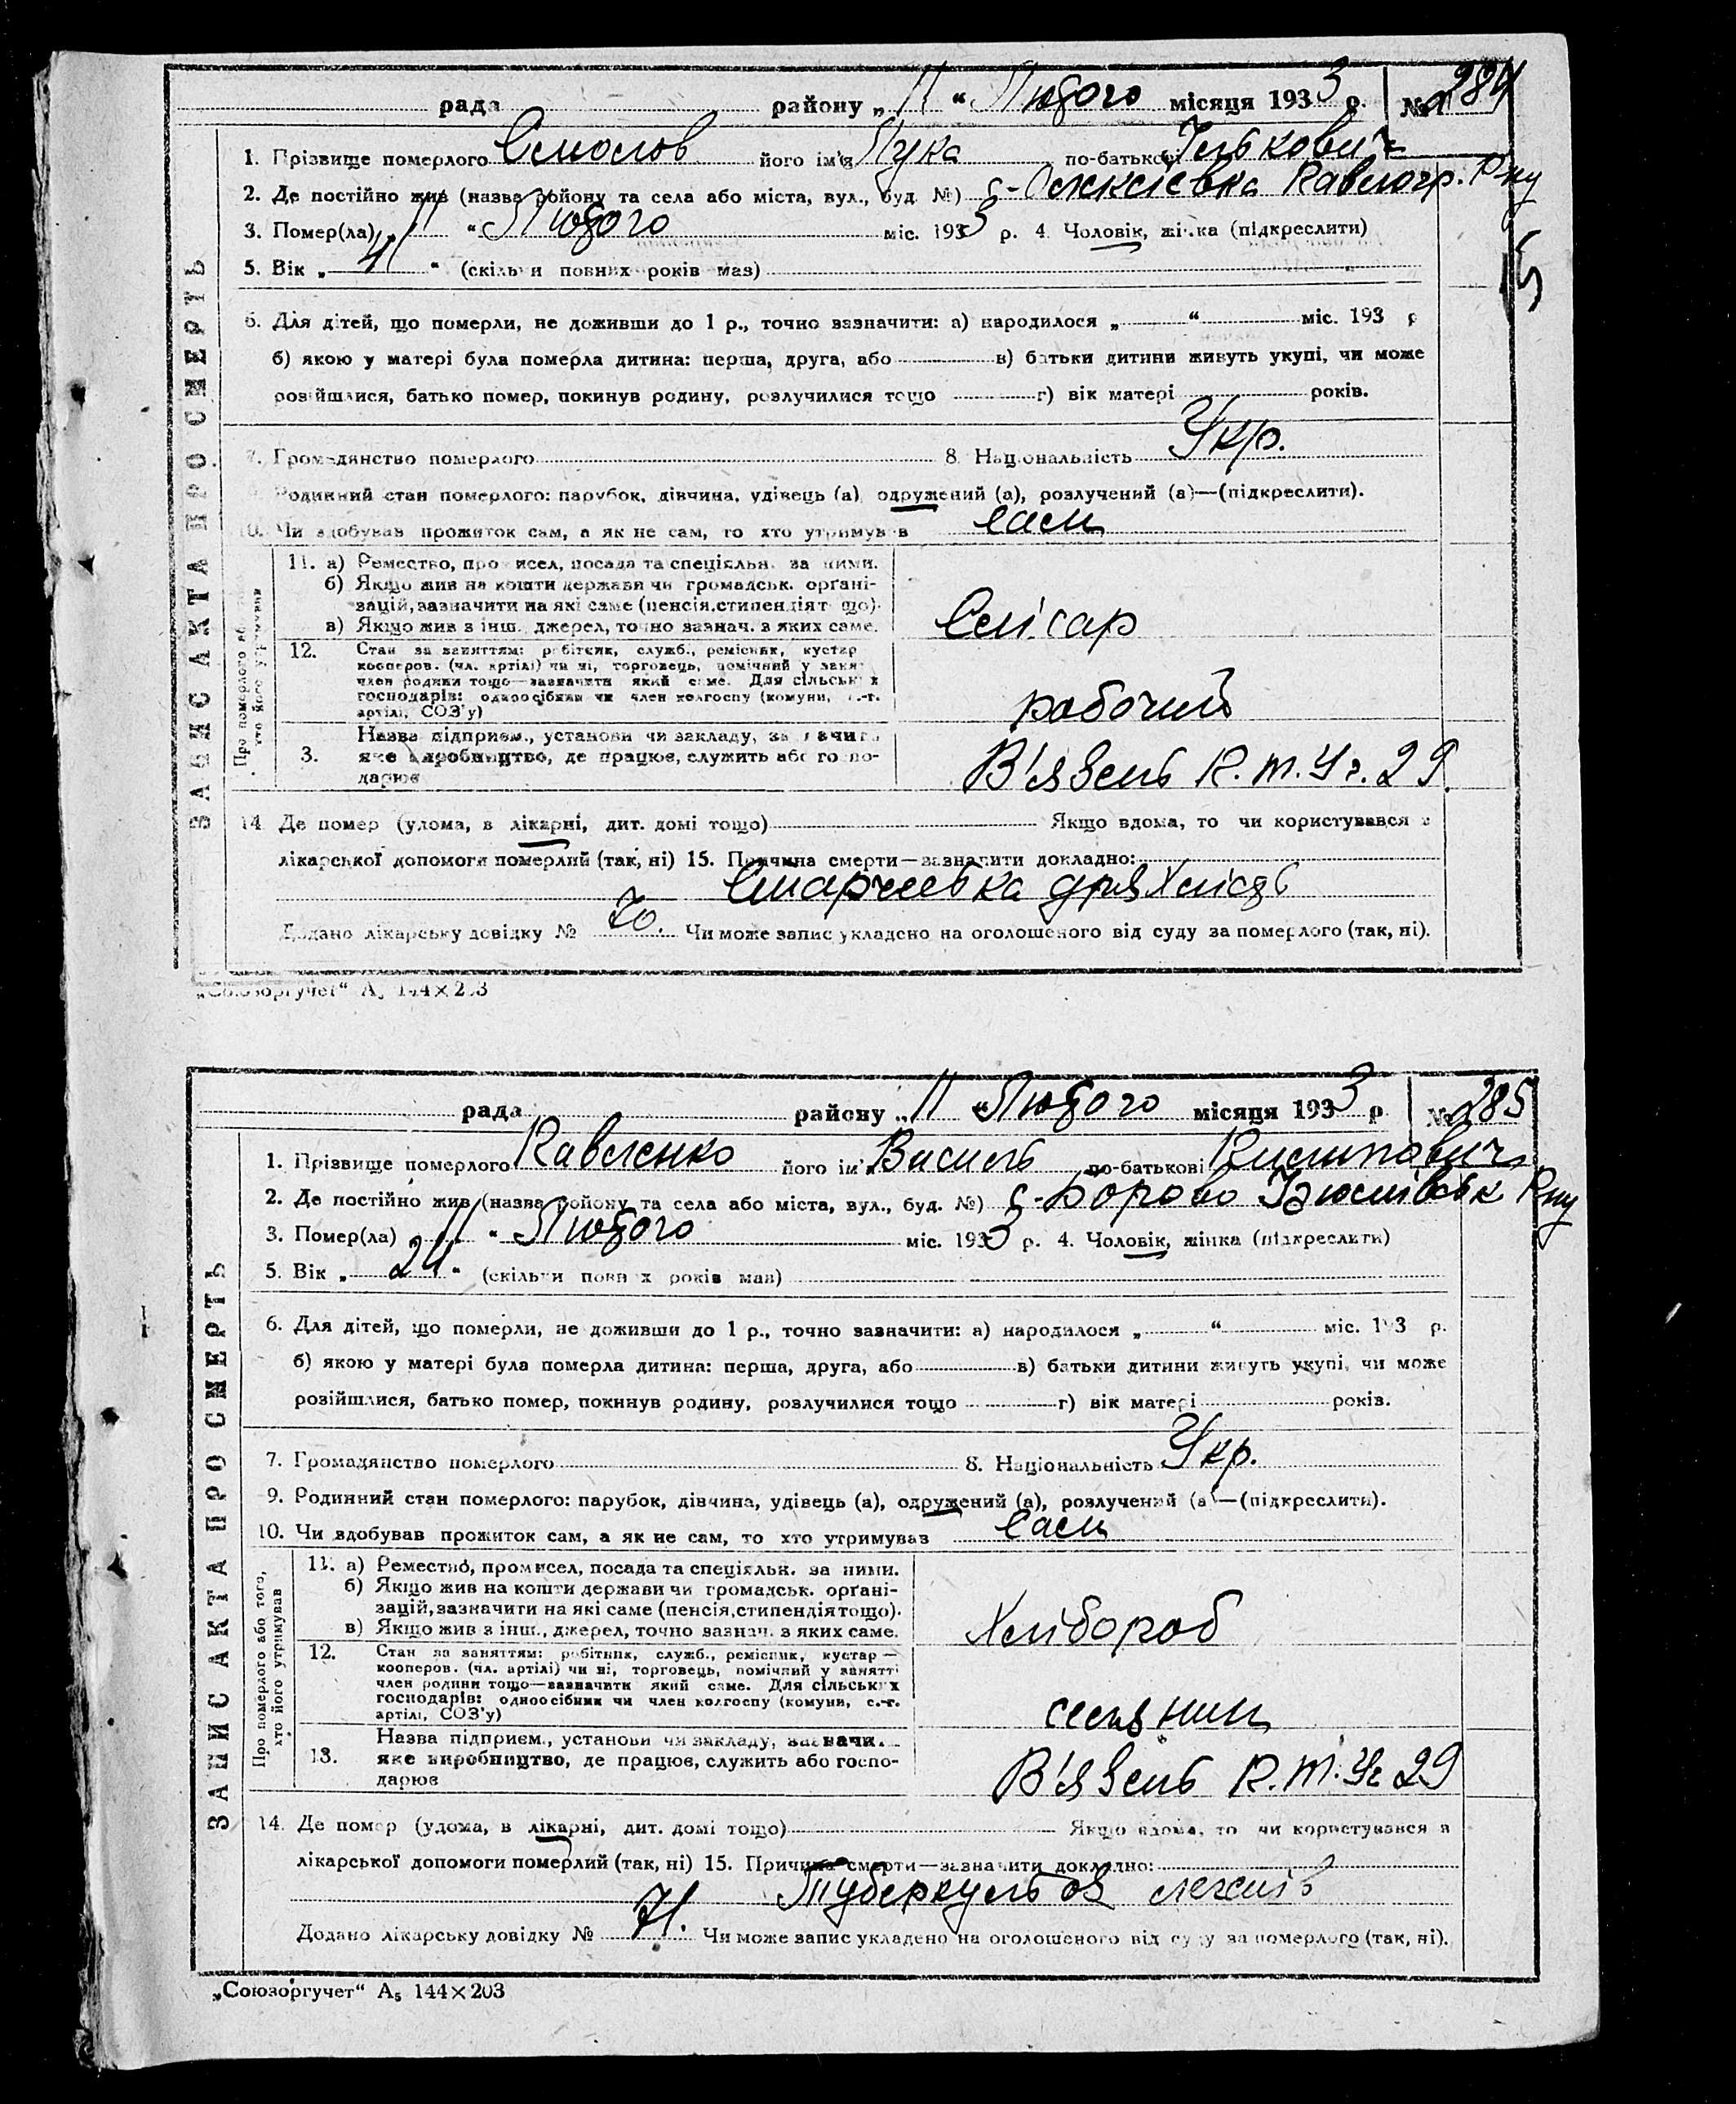 рада района „ 11 “ Лютого місяця 1933 р. № 284
1. Прізвище померлого Смолов його ім'я Лука по-батькові Ількович
2. Де постійно жив (назва району та села або міста, вул., буд. №) с-Олексієвка Павлогр. Р-ну
3. Помер(ла) „ 11 “ Лютого міс. 1933 р. 4. Чоловік, жінка (підкреслити)
15
5. Вік „ 41 “ (скільки повних років мав)
6. Для дітей, що померли, не доживши до 1 р., точно зазначити: а) народилося „ “ міс. 193 р
б) якою у матері була померла дитина: перша, друга, або в) батьки дитини живуть укупі, чи може
розійшлися, батько помер, покинув родину, розлучилися тощо г) вік матері років.
7. Громадянство померлого 8. Національність Укр.
9. Родинний стан померлого: парубок, дівчина, удівець (а), одружений (а), розлучений (а)—(підкреслити).
10. Чи здобував прожиток сам, а як не сам, то хто утримував сам
11. а) Ремество, промисел, посада та спеціяльн. за ними.
б) Якщо жив на кошти держави чи громадськ. орґані-
зацій, зазначити на які саме (пенсія, стипендія тощо).
в) Якщо жив з інш. джерел, точно зазнач. з яких саме.
Слісар
12. Стан за заняттям: робітник, служб., ремісник, кустар
кооперов. (чл. артілі) чи ні, торговець, помічний у занятті
член родини тощо—зазначити який саме. Для сільських
господарів: одноосібник чи член колгоспу (комуни, с.-г.
артілі, СОЗ'у)
рабочий
Назва підприєм., установи чи закладу, зазначити
3. яке виробництво, де працює, служить або госпо-
дарює
В'язень К.т.Уг. 29.
14. Де помер (удома, в лікарні, дит. домі тощо) Якщо вдома, то чи користувався з
лікарської допомоги померлий (так, ні) 15. Причина смерти—зазначити докладно:
Старчевка дряхлість
Додано лікарську довідку № 70. Чи може запис укладено на оголошеного від суду за померлого (так, ні).
ЗАПИС АКТА ПРО СМЕРТЬ
Про померлого або того, хто його утримував
„Союзоргучет“ А5 144×203
рада району „ 11 “ Лютого місяця 1933 р № 285
1. Прізвище померлого Кавленко його ім'я Василь по-батькові Килипович
2. Де постійно жив (назва району та села або міста, вул., буд. №) с-Борово Ізюмівськ Р-ну
3. Помер(ла) „ 11 “ Лютого міс. 1933 р. 4. Чоловік, жінка (підкреслити)
5. Вік „ 24 “ (скільки повних років мав)
6. Для дітей, що померли, не доживши до 1 р., точно зазначити: а) народилося „ “ міс. 193 р.
б) якою у матері була померла дитина: перша, друга, або в) батьки дитини живуть укупі, чи може
розійшлися, батько помер, покинув родину, розлучилися тощо г) вік матері років.
7. Громадянство померлого 8. Національність Укр.
9. Родинний стан померлого: парубок, дівчина, удівець (а), одружений (а), розлучений (а)—(підкреслити).
10. Чи здобував прожиток сам, а як не сам, то хто утримував сам
11. а) Ремество, промисел, посада та спеціяльн. за ними.
б) Якщо жив на кошти держави чи громадськ. орґані-
зацій, зазначити на які саме (пенсія, стипендія тощо).
в) Якщо жив з інш., джерел, точно зазнач. з яких саме.
Хлібороб
12. Стан за заняттям: робітник, служб., ремісник, кустар—
кооперов. (чл. артілі) чи ні, торговець, помічний у занятті
член родини тощо—зазначити який саме. Для сільських
господарів: одноосібник чи член колгоспу (комуни, с.-г.
артілі, СОЗ'у)
селянин
Назва підприєм., установи чи закладу, зазначи.
13. яке виробництво, де працює, служить або госпо-
дарює
В'язень К.т.Уг 29
14. Де помер (удома, в лікарні, дит. домі тощо) Якщо вдома, то чи користувався з
лікарської допомоги померлий (так, ні) 15. Причина смерти—зазначити докладно:
Туберкульоз легенів
Додано лікарську довідку № 71. Чи може запис укладено на оголошеного від суду за померлого (так, ні).
ЗАПИС АКТА ПРО СМЕРТЬ
Про померлого або того, хто його утримував
„Союзоргучет“ А5 144×203